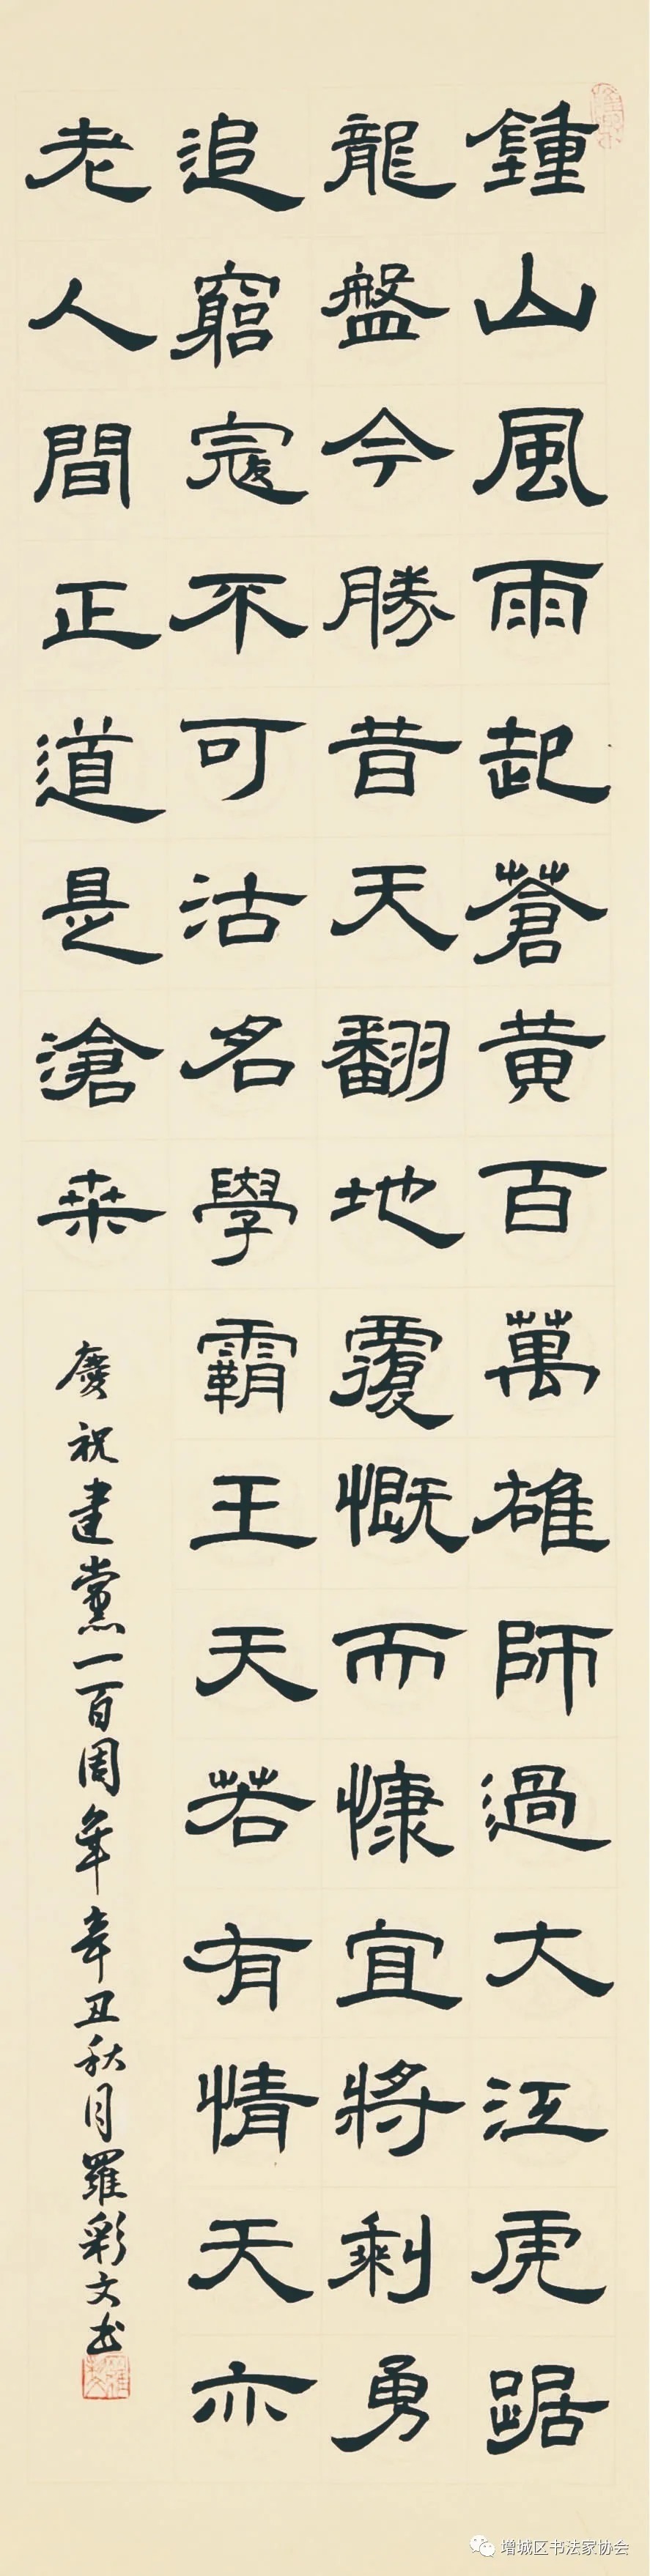 鍾山風雨起蒼黄百萬雄師過大江虎踞
龍盤今勝昔天翻地覆慨而慷宜將剩勇
追窮寇不可沽名學霸王天若有情天亦
老人間正道是滄桒
慶祝建黨一百周年辛丑秋月羅彩文书
增城区书法家协会